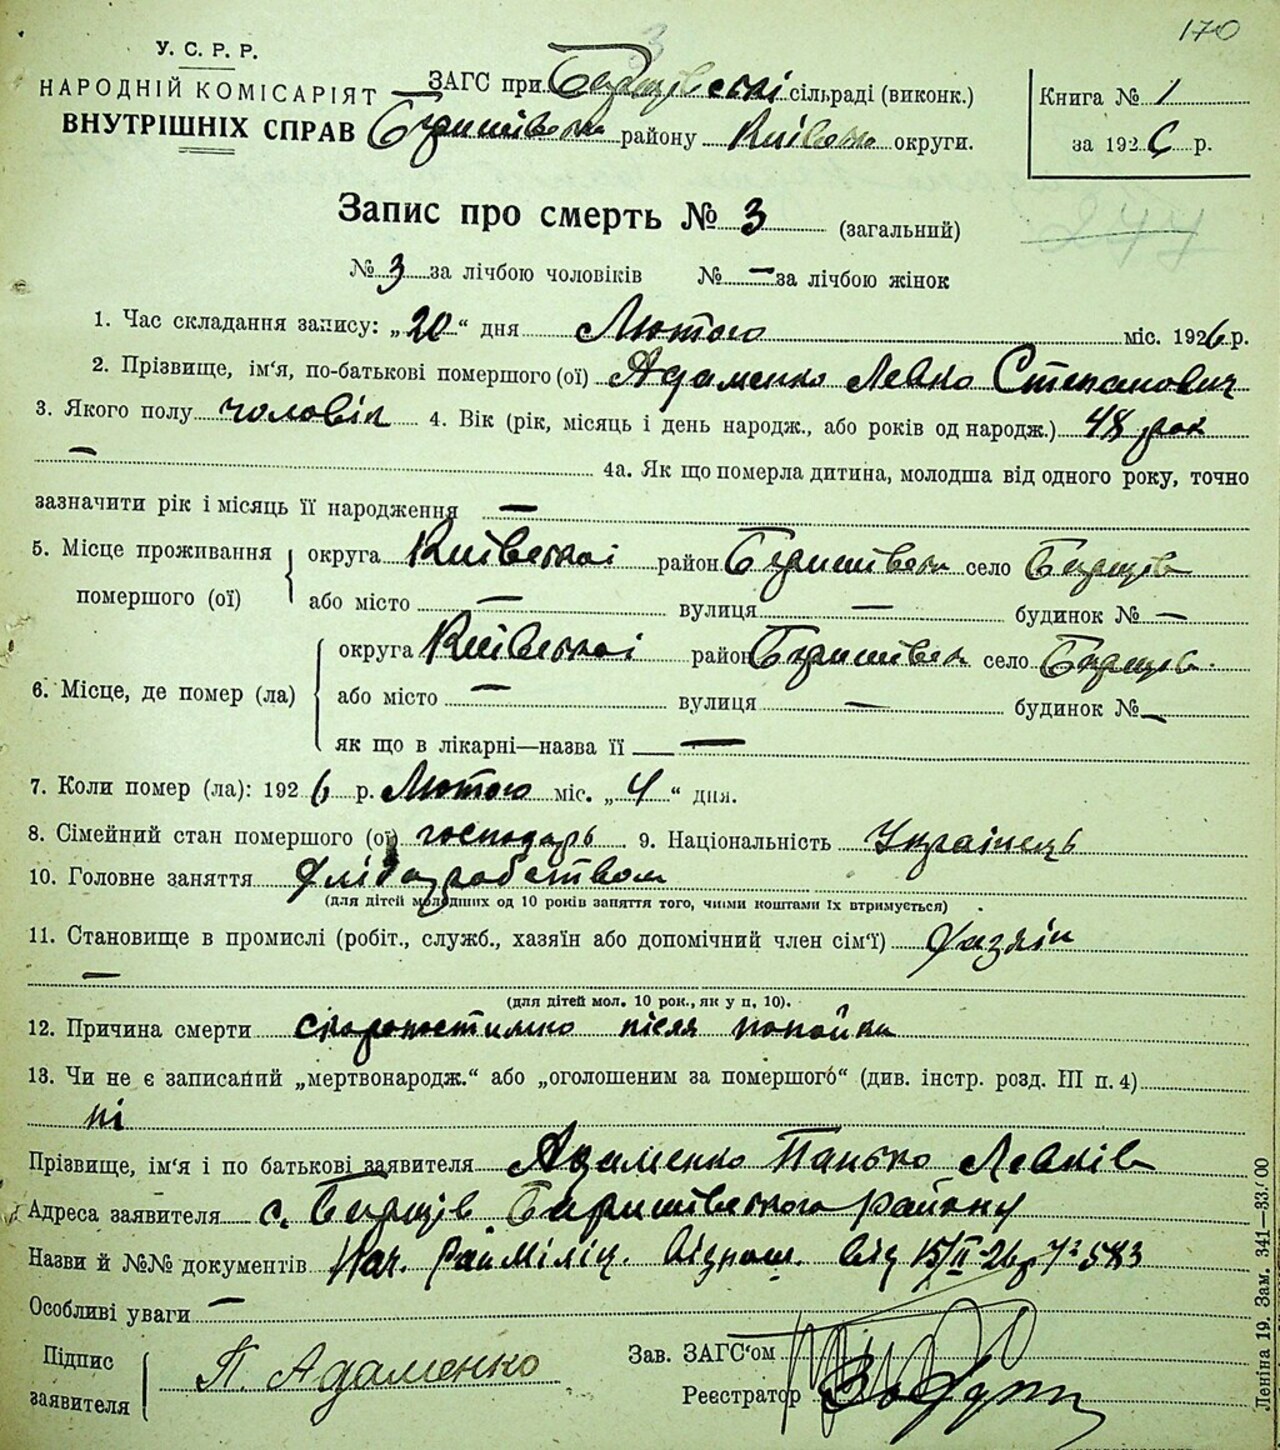 170
У. С. Р. Р.
НАРОДНІЙ КОМІСАРІЯТ
ВНУТРІШНІХ СПРАВ
ЗАГС при сільраді (виконк.)
району Київськ округи.
Книга № 1
за 1926 р.
244
Запис про смерть № 3 (загальний)
№ 3 за лічбою чоловіків № — за лічбою жінок
1. Час складання запису: „20“ дня Лютого міс. 1926 р.
2. Прізвище, ім'я, по-батькові помершого (ої) Адаменко Левко Степанович
3. Якого полу чоловік 4. Вік (рік, місяць і день народж., або років од народж.) 48 рок
— 4а. Як що померла дитина, молодша від одного року, точно
зазначити рік і місяць її народження —
5. Місце проживання помершого (ої) округа Київської район село
або місто — вулиця — будинок № —
6. Місце, де помер (ла) округа Київської район село
або місто — вулиця — будинок № —
як що в лікарні—назва її —
7. Коли помер (ла): 1926 р. Лютого міс. „4“ дня.
8. Сімейний стан помершого (ої) господарь 9. Національність Українець
10. Головне заняття хлібо
(для дітей молодших од 10 років заняття того, чиїми коштами їх втримується)
11. Становище в промислі (робіт., служб., хазяїн або допомічний член сім'ї) Хазяїн
—
(для дітей мол. 10 рок., як у п. 10).
12. Причина смерти скоропостижно після попойки
13. Чи не є записаний „мертвонародж.“ або „оголошеним за помершого“ (див. інстр. розд. III п. 4)
ні
Прізвище, ім'я і по батькові заявителя Адаменко Панько Левків
Адреса заявителя с. Баришівського району
Назви й №№ документів Нач. РайМіліц. віднош. від 15/II-26р № 583
Особливі уваги —
Підпис заявителя П. Адаменко
Зав. ЗАГС'ом
Реєстратор
Леніна 19. Зам. 341—33.